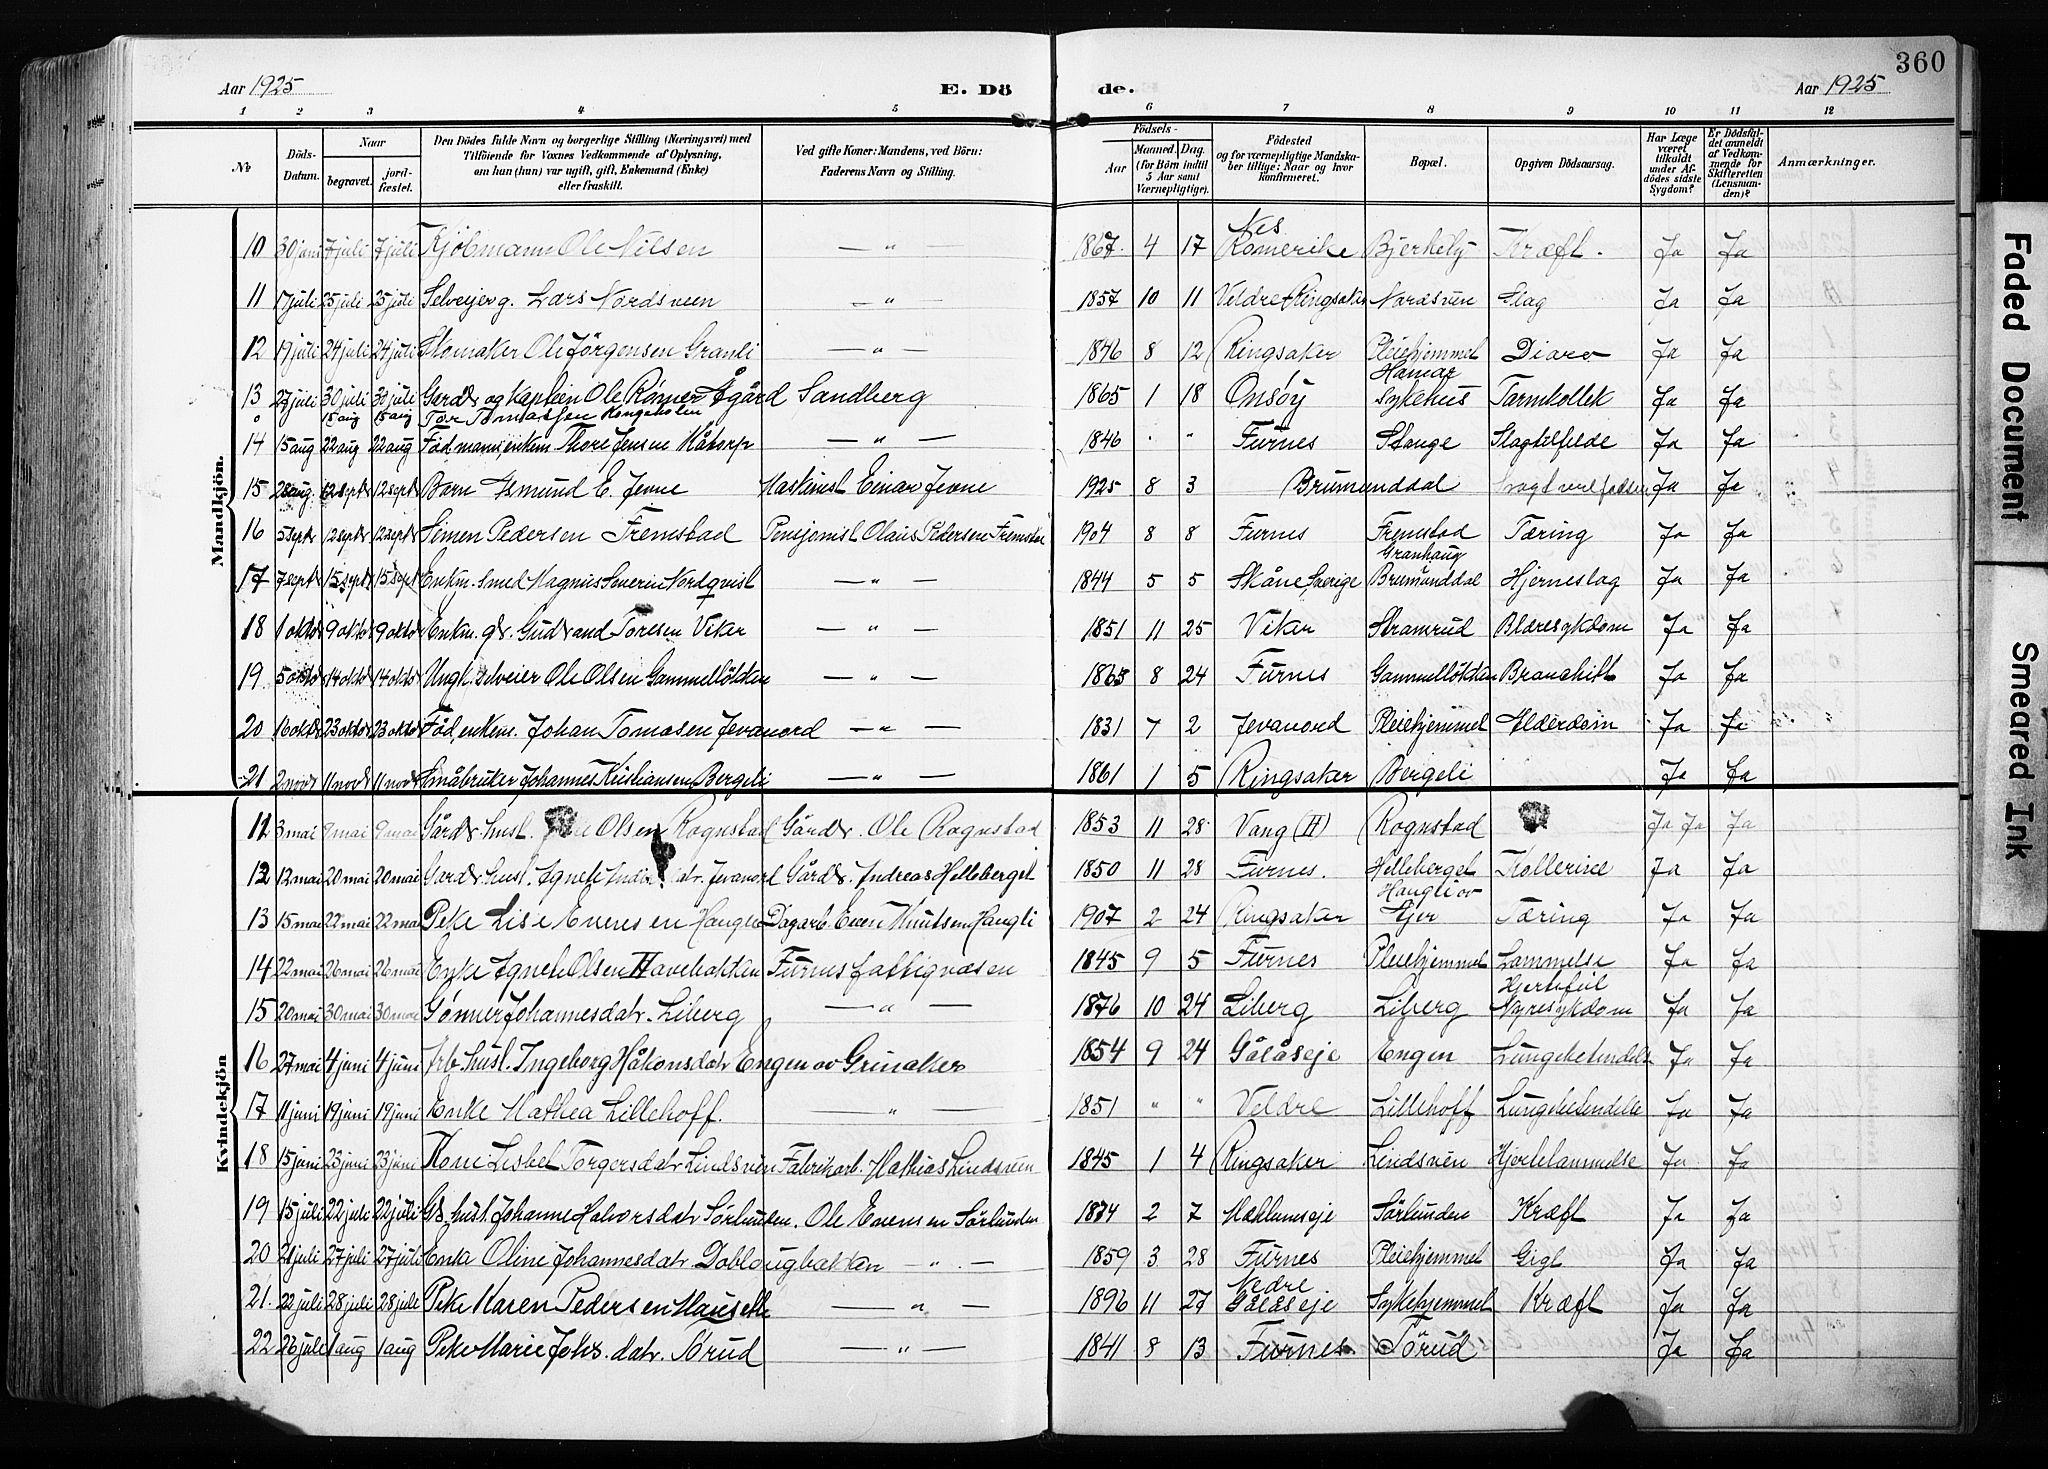 360
Aar 1925
E. Dö
de.
Aar 1925
1 2 3 4 5 6 7 8 9 10 11 12
№
Döds-Datum.
Naar
begravet.
jordfæstet.
Den Dödes fulde Navn og borgerlige Stilling (Næringsvei) med
Tilföiende for Voxnes Vedkommende af Oplysning,
om han (hun) var ugift, gift, Enkemand (Enke)
eller fraskilt.
Ved gifte Koner: Mandens, ved Börn:
Faderens Navn og Stilling.
Födsels-
Aar
Maaned. Dag.
(for Börn indtil
5 Aar samt
Værnepligtige).
Födested
og for værnepligtige Mandskaber tillige: Naar og hvor
konfirmeret.
Bopæl.
Opgiven Dödsaarsag.
Har Læge
været
tilkaldt
under Afdödes sidste
Sygdom?
Er Dödsfaldet anmeldt
af Vedkommende for
Skifteretten
(Lensmanden)?
Anmærkninger.
Mandkjön.
10 30 juni 7 juli 7 juli Kjöbmann Ole Nilsen — " — 1867 4 17 Nes Romerike Bjerkely Kræft. Ja Ja
11 17 juli 25 juli 25 juli Selveierg. Lars Nordsveen — " — 1857 10 11 Veldre Ringsaker Nordsven Slag Ja Ja
12 19 juli 24 juli 24 juli Skomaker Ole Jörgensen Granli — " — 1846 8 12 Ringsaker Pleiehjemmet Diare Ja Ja
13 27 juli 30 juli 30 juli Gardbr og Kaptein Ole Rømer Ågård Sandberg 1865 1 18 Onsöy Hamar Sykehus Tarmkollek Ja Ja
15 aug 15 aug Tor Tomassen Kongeholen
14 15 aug 22 aug 22 aug Föd mann, enkem Thore Jensen Håtorp — " — 1846 " Furnes Stange Slagtilfelde Ja Ja
15 28 aug. 12 sept 12 sept Barn Asmund E. Jevne Maskinist Einar Jevne 1925 8 3 Brumunddal Ja Ja
16 5 sept 12 sept 12 sept Simen Pedersen Fremstad Pensjonist Olaus Pedersen Fremstad 1904 8 8 Furnes Fremstad Tæring Ja Ja
17 7 sept 15 sept 15 sept Enkm. Smed Magnus Severin Nordqvist — " — 1844 5 5 Skåne, Sverige Granhaug Brumunddal Hjerneslag Ja Ja
18 1 oktbr 9 oktbr 9 oktbr Enkm. gbr. Gudbrand Toresen Viker — " — 1851 11 25 Viker Stramrud Blæresykdom Ja Ja
19 5 oktbr 14 oktbr 14 oktbr Ungk. selveier Ole Olsen Gammellökken — " — 1865 8 24 Furnes Gammellökken Bronchitt Ja Ja
20 16 oktbr 23 oktbr 23 oktbr Föd, enkem. Johan Tomasen Jevanord — " — 1831 7 2 Jevanord Pleiehjemmet Alderdom Ja Ja
21 2 novbr 11 novbr 11 novbr Småbruker Johannes Kristiansen Bergeli — " — 1861 1 5 Ringsaker Bergeli Ja Ja
Kvindekjön
11 3 mai 9 mai 9 mai Gårdbr. hust. Olsen Rognstad Gårdbr. Ole Rognstad 1853 11 28 Vang (H) Rognstad Ja Ja Ja
12 12 mai 20 mai 20 mai Gardbr. hust. Agnete datr. Jevanord Gårdbr. Andreas Helleberget 1850 11 28 Furnes. Helleberget Kollerine Ja Ja
13 15 mai 22 mai 22 mai Pike Lise Evensen Haugli Dagarb. Even Knutsen Haugli 1907 2 24 Ringsaker Haugli ov Stjer Tæring Ja Ja
14 22 mai 26 mai 26 mai Enke Agnete Olsen Havebakken Furnes fattigvæsen 1845 9 5 Furnes Pleiehjemmet Lammelse Ja Ja
15 20 mai 30 mai 30 mai Gunner Johannesdatr. Liberg — " — 1876 10 24 Liberg Liberg Hjertefeil Nyresykdom Ja Ja
16 27 mai 4 juni 4 juni Arb. hust. Ingeborg Håkonsdatr Engen av Grinaker 1854 9 24 Gålåseje Engen Lungebetendelse Ja Ja
17 11 juni 19 juni 19 juni Enke Mathea Lillehoff. " — 1851 " " Veldre Lillehoff Lungebetendelse Ja Ja
18 15 juni 23 juni 23 juni Kone Lisbet Torgersdatr Lindsven Fabrikarb. Mathias Lindsven 1845 1 4 Ringsaker Lindsven Hjertelammelse Ja Ja
19 15 juli 22 juli 22 juli Gb. hust. Johanne Halvorsdatr Sörlunden. Ole Evensen Sörlunden 1874 2 7 Mæhlumseje Sörlunden Kræft Ja Ja
20 21 juli 27 juli 27 juli Enke Oline Johannesdatr Doblougbakken — " — 1859 3 28 Furnes Pleiehjemmet Gigt Ja Ja
21 22 juli 28 juli 28 juli Pike Karen Pedersen Mauseth — " — 1896 11 27 Nedre Gålåseje Sykehjemmet Kræft Ja Ja
22 26 juli 1 aug 1 aug Pike Marie Johs. datr. Sörud — " — 1841 8 13 Furnes Törud Ja Ja
Faded Document
Smeared Ink